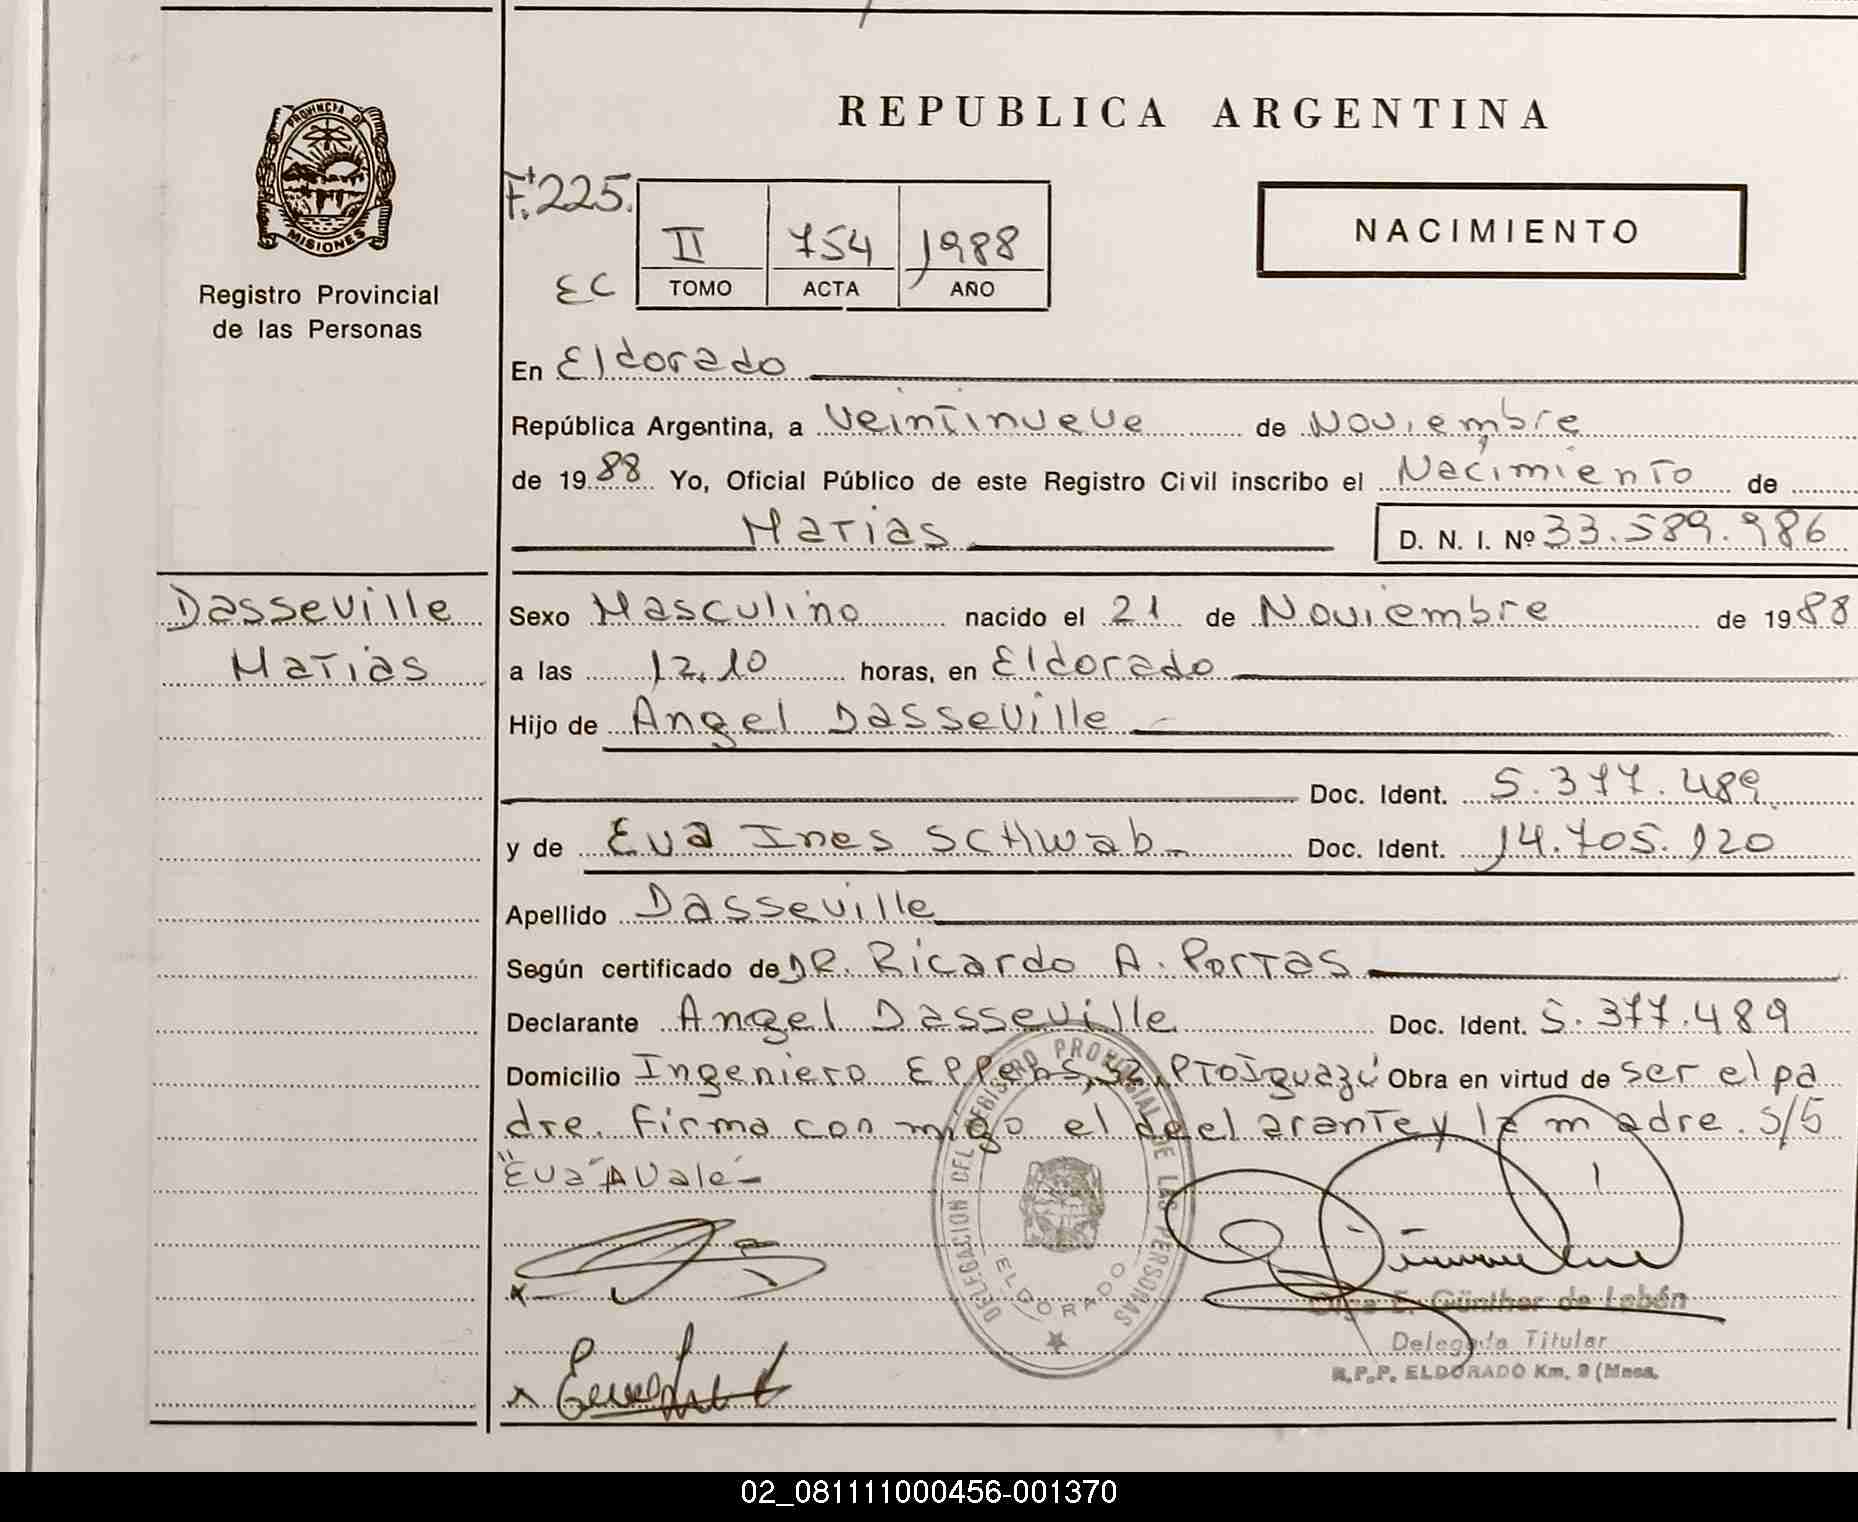 REPUBLICA ARGENTINA
PROVINCIA DE
MISIONES
Registro Provincial
de las Personas
Fº 225.
EC
II 754 1988
TOMO ACTA AÑO
NACIMIENTO
En Eldorado
República Argentina, a Veintinueve de Noviembre
de 1988 Yo, Oficial Público de este Registro Civil inscribo el Nacimiento de
Matias D. N. I. Nº 33.589.986
Dasseville
Matias
Sexo Masculino nacido el 21 de Noviembre de 1988
a las 12,10 horas, en Eldorado
Hijo de Angel Dasseville
Doc. Ident. 5.377.489
y de Eva Ines SCHwab Doc. Ident. 14.705.120
Apellido Dasseville
Según certificado de DR. Ricardo A. Portas
Declarante Angel Dasseville Doc. Ident. 5.377.489
Domicilio Ingeniero Eppens, 52, PtoIguazú Obra en virtud de ser el pa
dre. Firma con migo el decl arante y la m adre. S/5
"Eva" A Vale-
DELEGACION DEL REGISTRO PROVINCIAL DE LAS PERSONAS
ELDORADO
Olga E. Günther de Lebón
Delegada Titular
R.P.P. ELDORADO Km. 9 (Mnes.
02_081111000456-001370